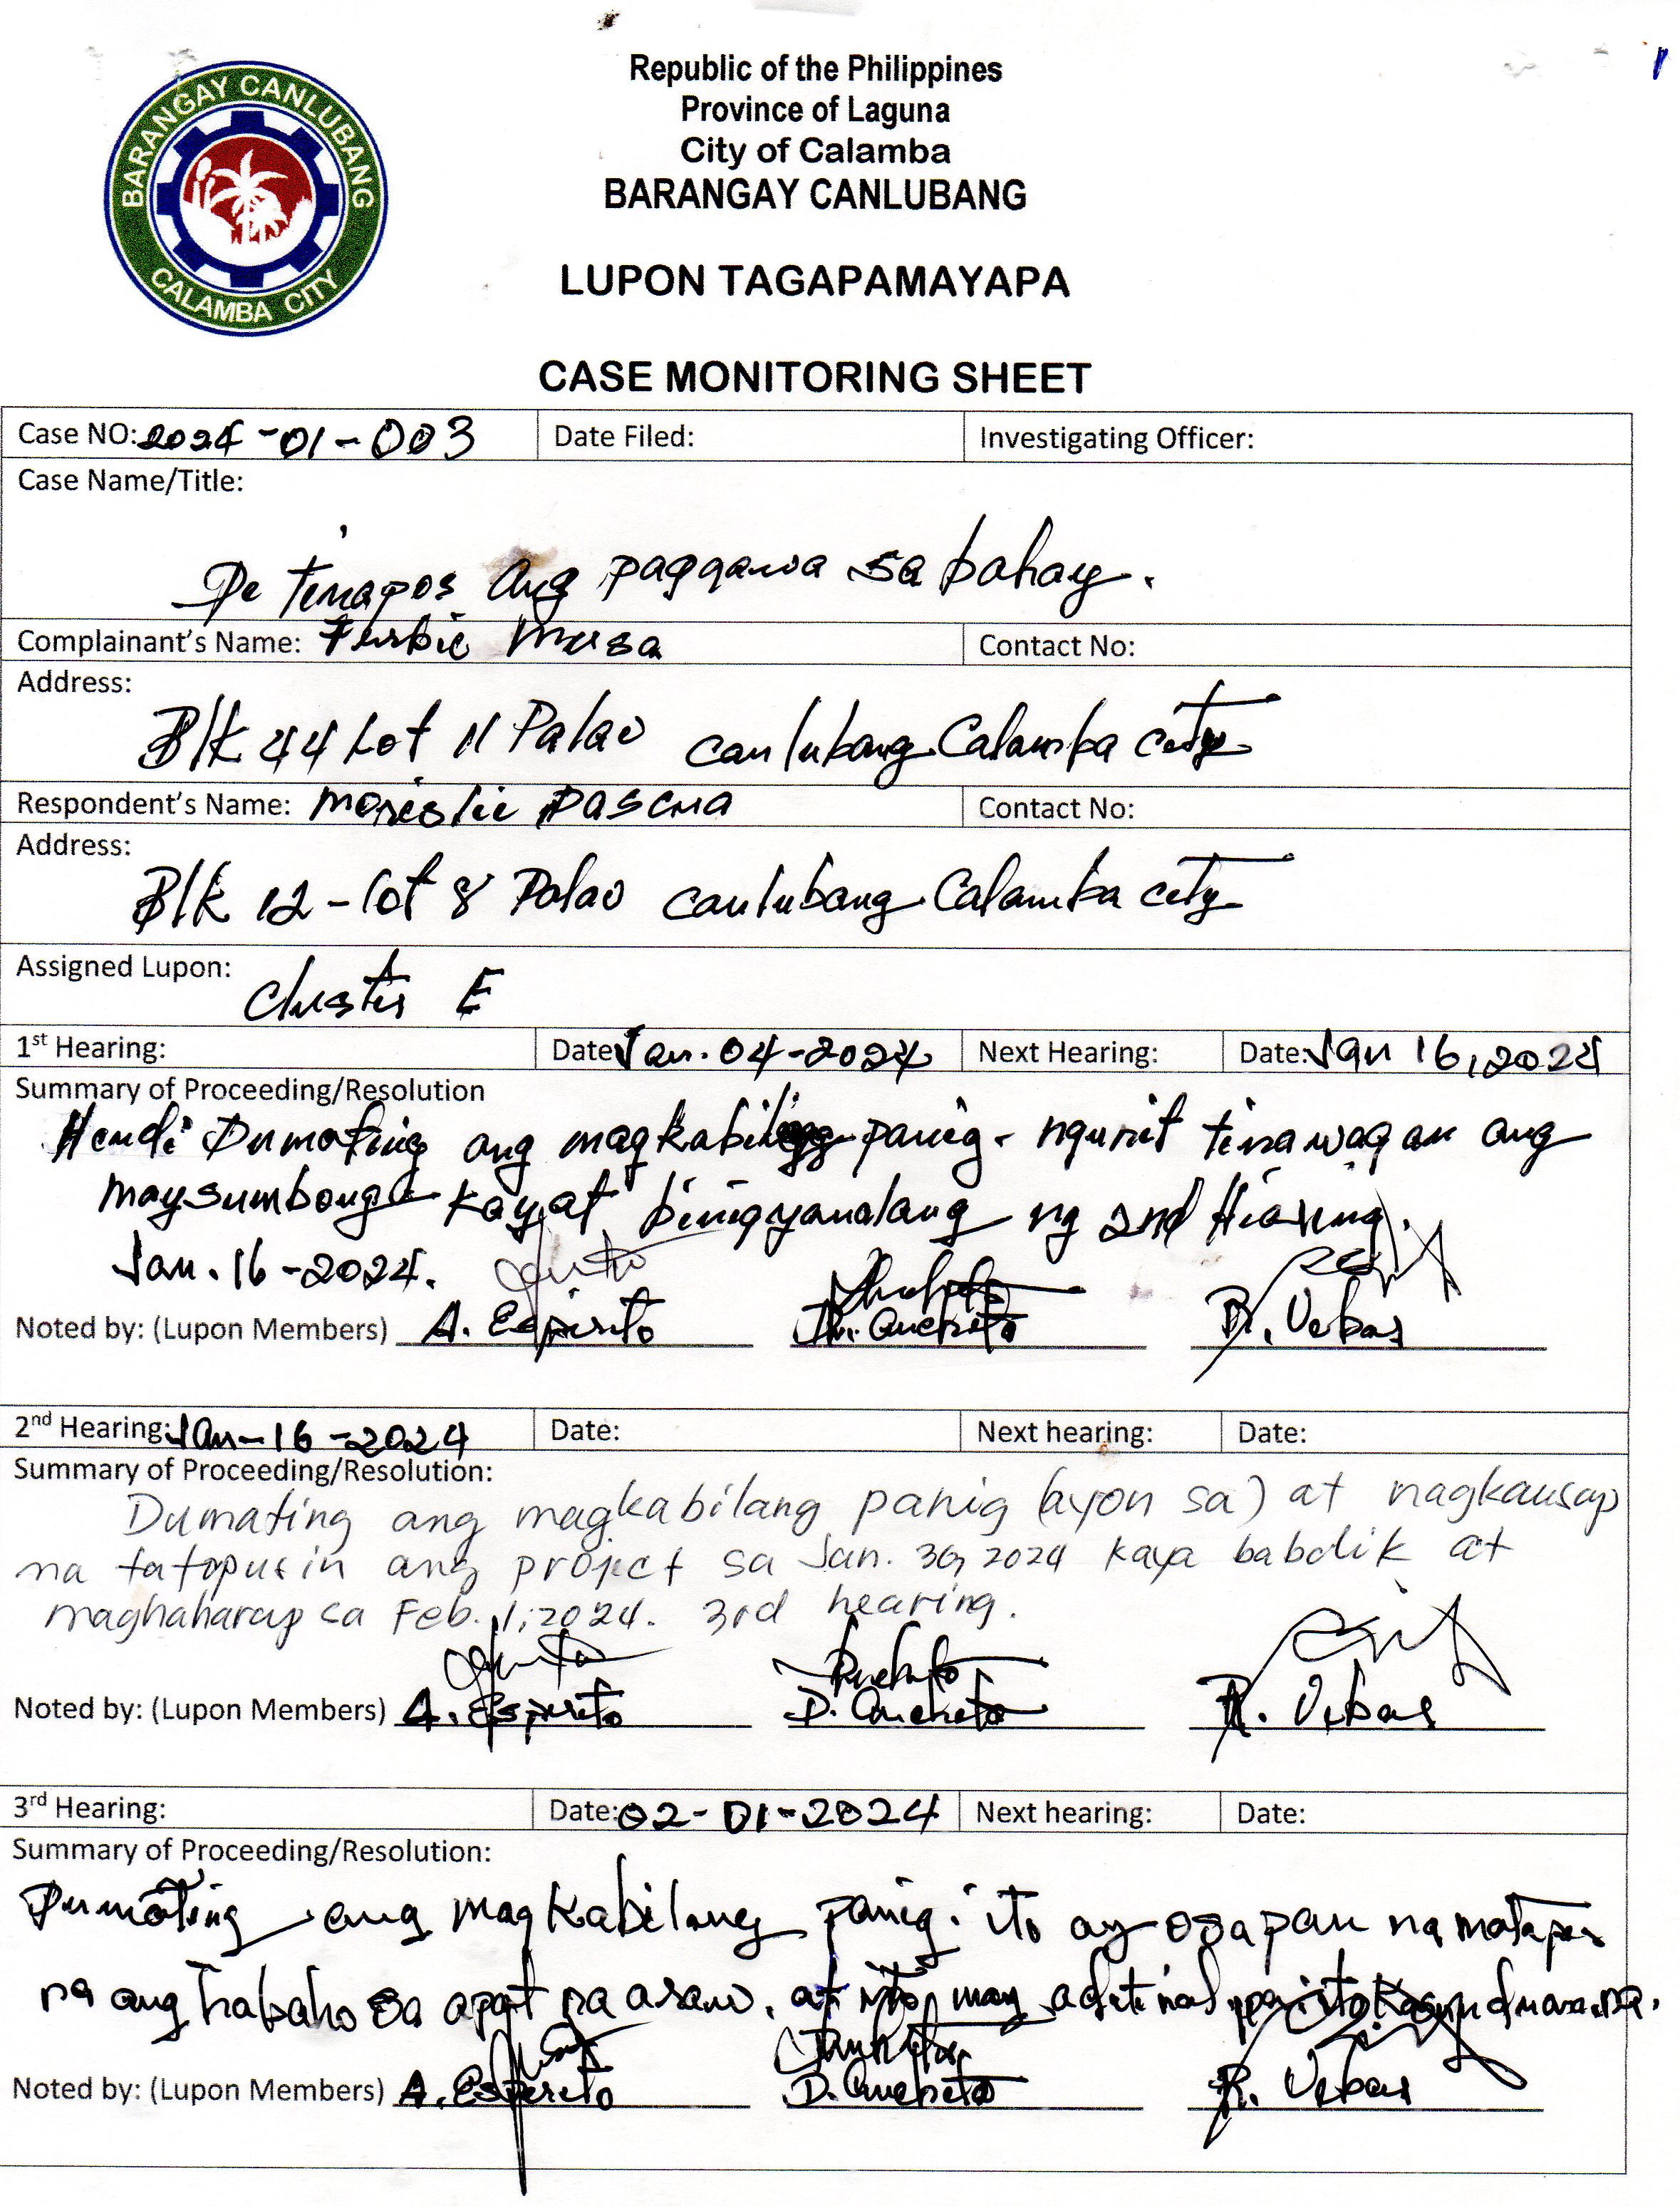 BARANGAY CANLUBANG
CALAMBA CITY
Republic of the Philippines
Province of Laguna
City of Calamba
BARANGAY CANLUBANG
LUPON TAGAPAMAYAPA
CASE MONITORING SHEET
Case NO: 2024-01-003 Date Filed: Investigating Officer:
Case Name/Title:
De tinapos ang paggawa sa bahay.
Complainant's Name: Contact No:
Address:
Blk 44 Lot 11 Palao canlubang Calamba city
Respondent's Name: Contact No:
Address:
Blk 12-lot 8 Palao canlubang Calamba city
Assigned Lupon:
Cluster E
1st Hearing: Date: Jan. 04-2024 Next Hearing: Date: Jan 16, 2024
Summary of Proceeding/Resolution
Hendi Dumating ang magkabilang panig. ngunit tinawagan ang
maysumbong kayat binigyanalang ng 2nd Hearing.
Jan. 16-2024.
Noted by: (Lupon Members) A. Espirito D. R. Vibas
2nd Hearing: Jan-16-2024 Date: Next hearing: Date:
Summary of Proceeding/Resolution:
Dumating ang magkabilang panig (ayon sa) at nagkausap
na tatapusin ang project sa Jan. 30, 2024 kaya babalik at
maghaharap sa Feb. 1, 2024. 3rd hearing.
Noted by: (Lupon Members) A. Espirito D. R. Vibas
3rd Hearing: Date: 02-01-2024 Next hearing: Date:
Summary of Proceeding/Resolution:
Dumating ang magkabilang panig. ito ay osapan na matapos
na ang trabaho sa apat na araw. at ito may
Noted by: (Lupon Members) A. Espirito D. R. Vibas